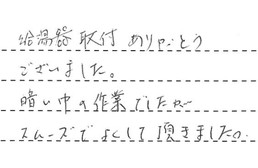 給湯器取付ありがとう
ございました。
暗い中の作業でしたが
スムーズでよくして頂きました。